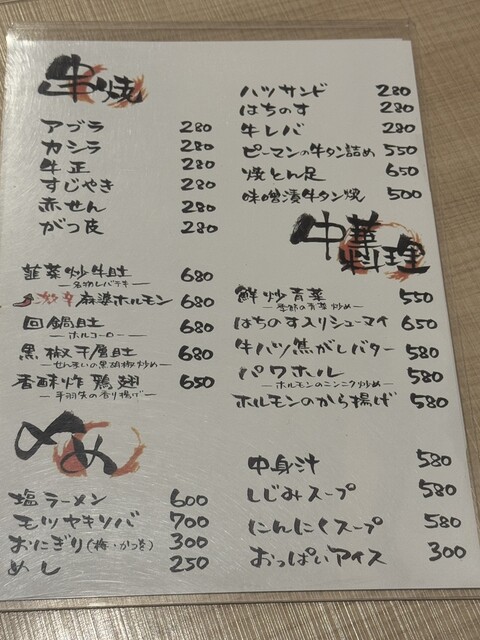 串焼
アブラ 280
カシラ 280
牛正 280
すじやき 280
赤せん 280
がつ皮 280
ハツサンド 280
はちのす 280
牛レバ 280
ピーマンの牛タン詰め 550
焼とん足 650
味噌漬牛タン焼 500
中華料理
韮菜炒牛肚 680
ー名物レバテキー
激辛麻婆ホルモン 680
回鍋肚 680
ーホルコーローー
黒椒千層肚 680
ーせんまいの黒胡椒炒めー
香酥炸鶏翅 650
ー手羽先の香り揚げー
鮮炒青菜 550
ー季節の青菜炒めー
はちのす入りシューマイ 650
牛ハツ焦がしバター 580
パワホル 580
ーホルモンのニンニク炒めー
ホルモンのから揚げ 580
〆め
塩ラーメン 600
モツヤキソバ 700
おにぎり(梅・かつを) 300
めし 250
中身汁 580
しじみスープ 580
にんにくスープ 580
おっぱいアイス 300